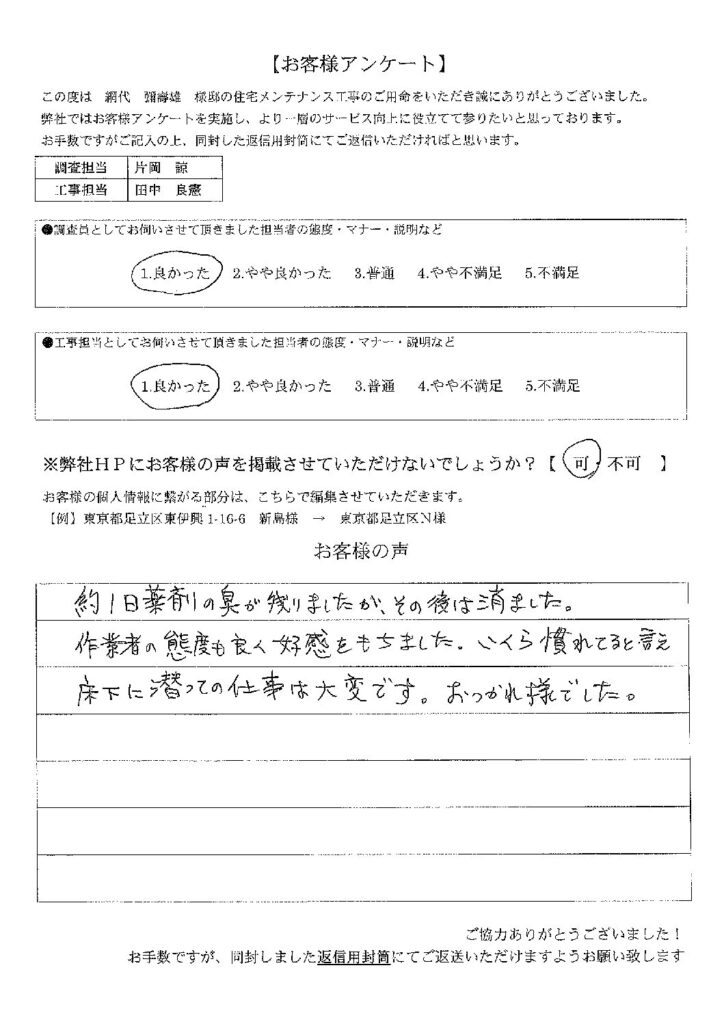 【お客様アンケート】
この度は　網代　彌壽雄　様邸の住宅メンテナンス工事のご用命をいただき誠にありがとうございました。
弊社ではお客様アンケートを実施し、より一層のサービス向上に役立てて参りたいと思っております。
お手数ですがご記入の上、同封した返信用封筒にてご返信いただければと思います。
調査担当　片岡　諒
工事担当　田中　良憲
●調査員としてお伺いさせて頂きました担当者の態度・マナー・説明など
1.良かった　2.やや良かった　3.普通　4.やや不満足　5.不満足
●工事担当としてお伺いさせて頂きました担当者の態度・マナー・説明など
1.良かった　2.やや良かった　3.普通　4.やや不満足　5.不満足
※弊社HPにお客様の声を掲載させていただけないでしょうか？【　可・不可　】
お客様の個人情報に繋がる部分は、こちらで編集させていただきます。
【例】東京都足立区東伊興1-16-6　新島様　→　東京都足立区N様
お客様の声
約1日薬剤の臭が残りましたが、その後は消ました。
作業者の態度も良く好感をもちました。いくら慣れてると言え
床下に潜っての仕事は大変です。おつかれ様でした。
ご協力ありがとうございました！
お手数ですが、同封しました返信用封筒にてご返送いただけますようお願い致します